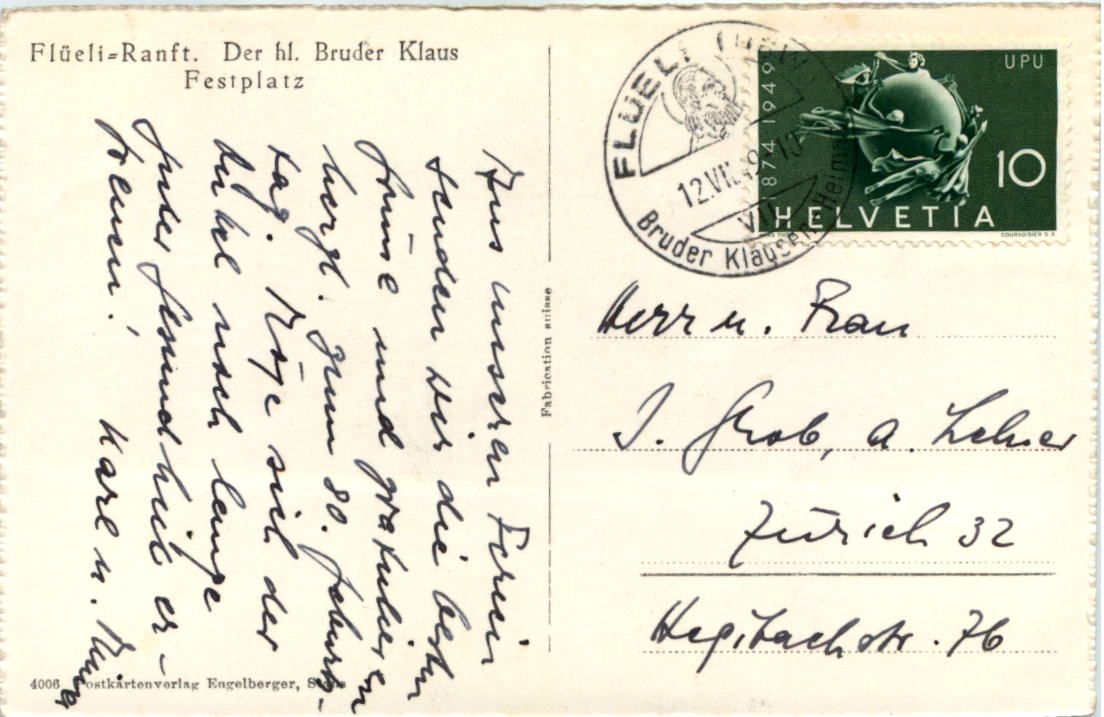 Flüeli-Ranft. Der hl. Bruder Klaus
Festplatz
Aus unseren Ferien
senden wir die besten
Grüsse und gratulieren
herzl. zum 80. Geburts-
tag. Möge sich der
Onkel noch lange
guter Gesundheit er-
freuen! Karl u.
4006 Postkartenverlag Engelberger, Stans
Fabrication suisse
FLÜELI (OBW.)
12.VII.49-10
VII
Bruder Klausen Heimat
1874 1949
UPU
10
HELVETIA
COURVOISIER S.A.
Herr u. Frau
J. Grob, a. Lehrer
Zürich 32
Hegibachstr. 76